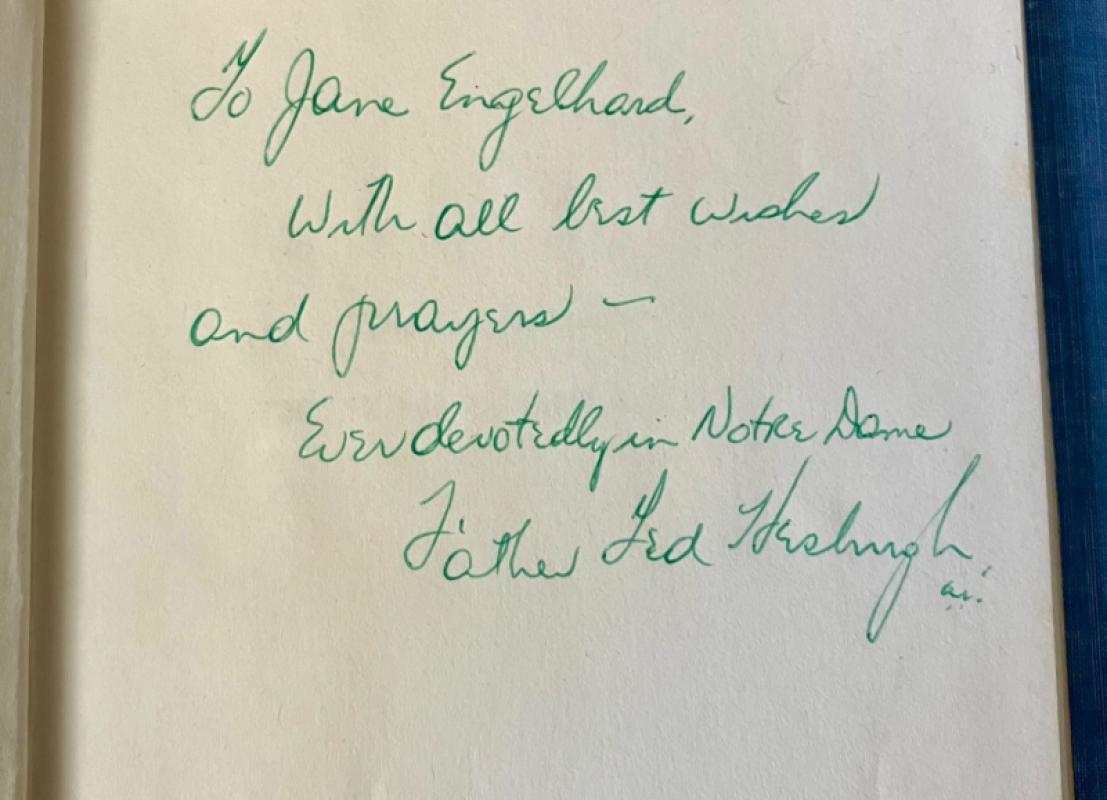 To Jane Engelhard,
With all best wishes
and prayers —
Ever devotedly in Notre Dame
Father Ted Hesburgh,